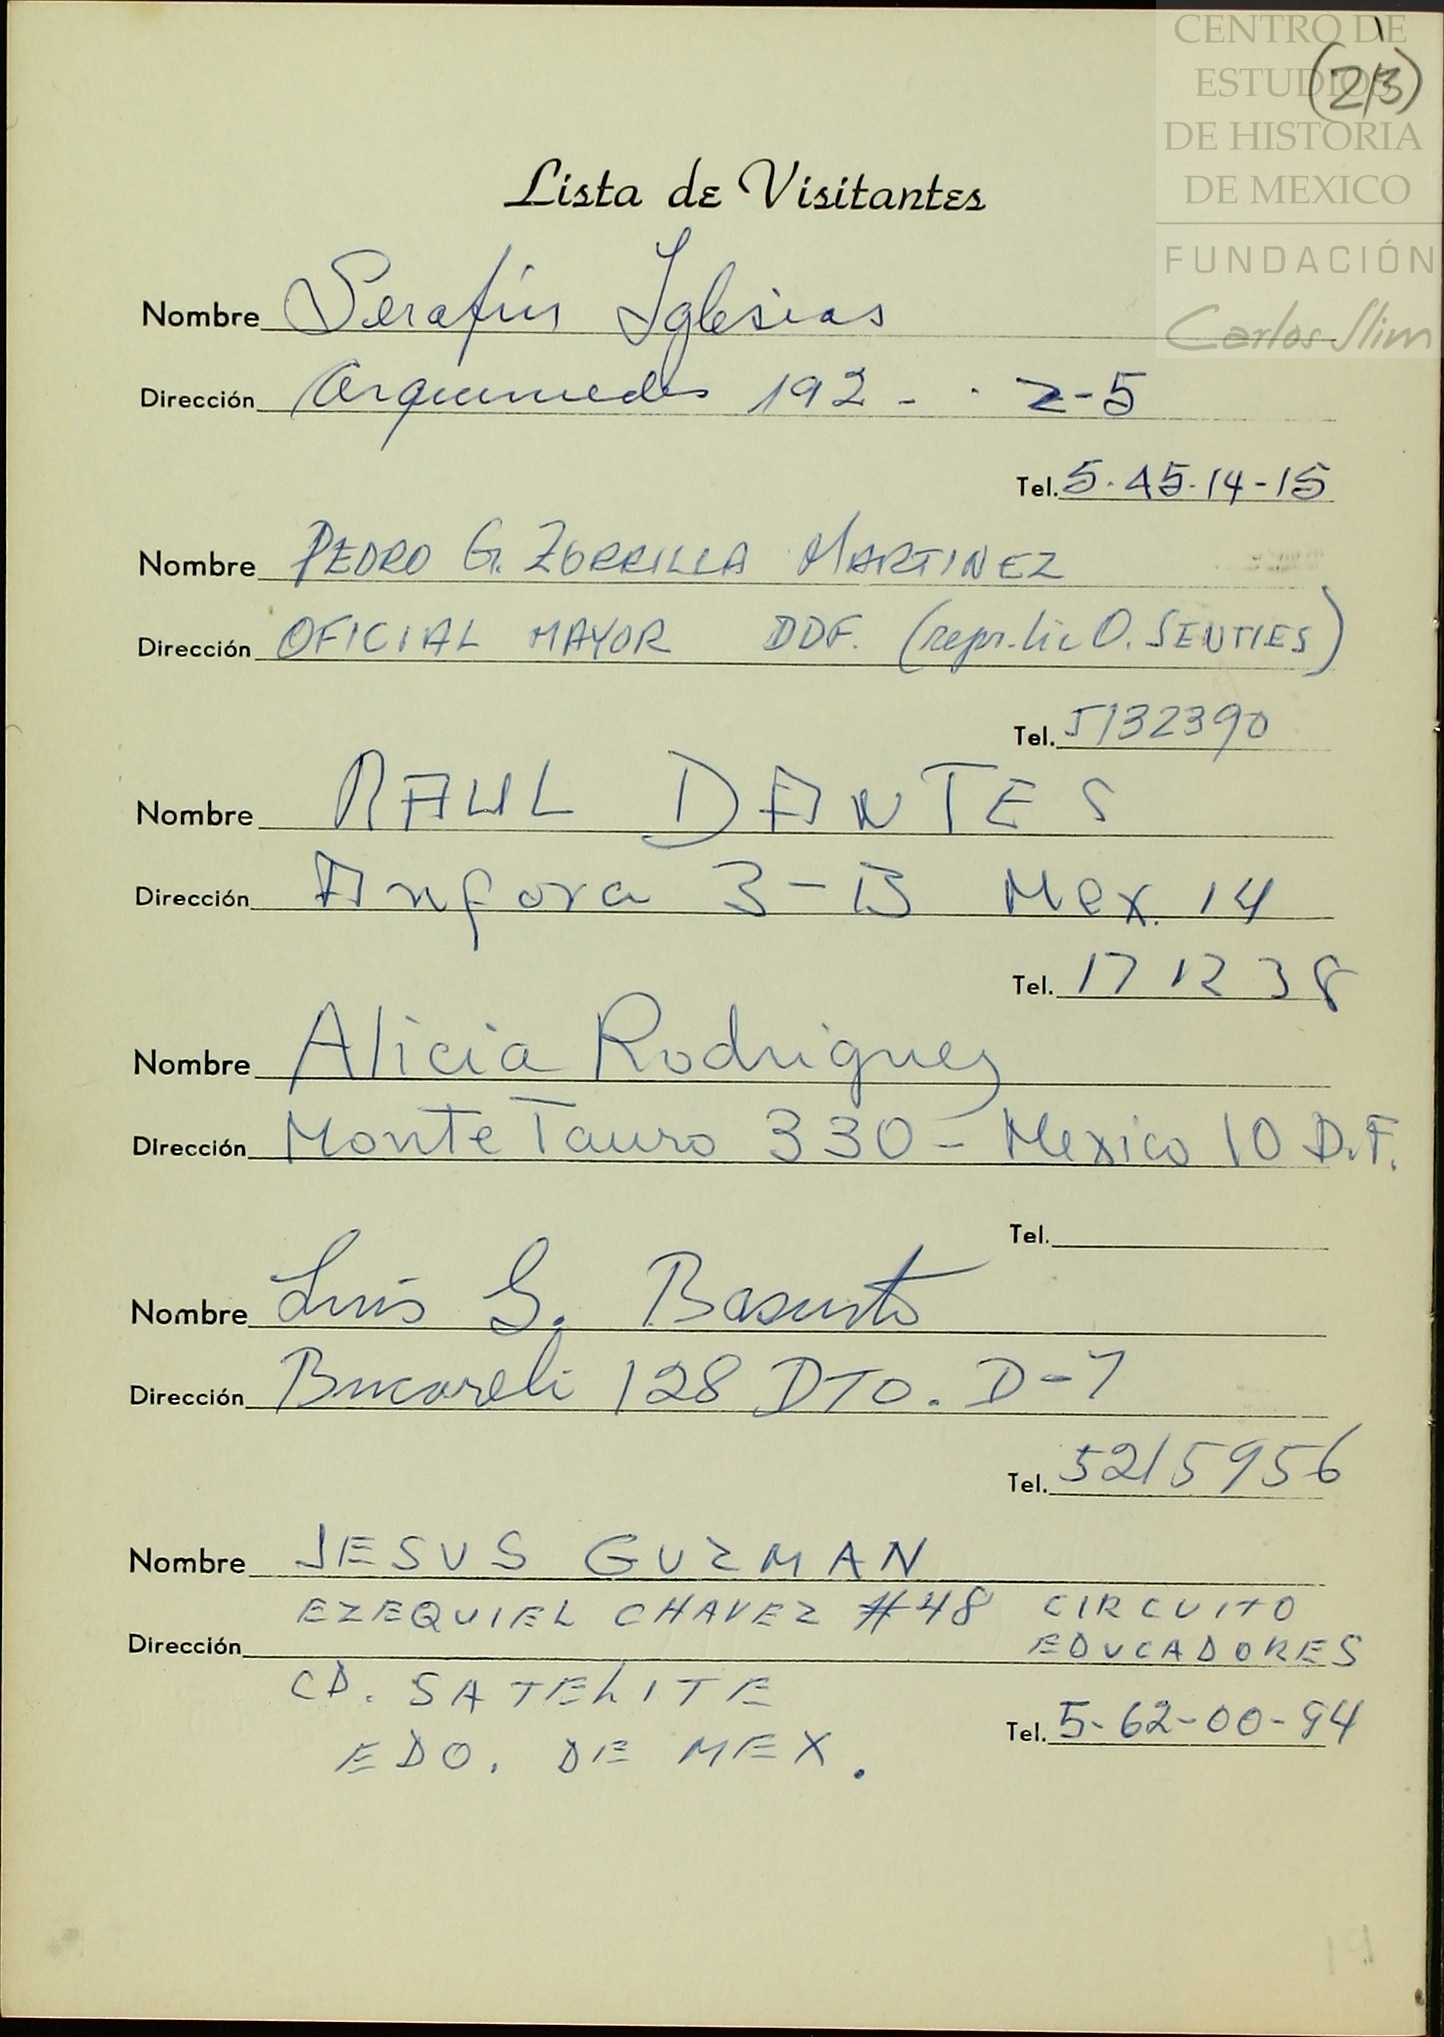 CENTRO DE
ESTUDIOS
DE HISTORIA
DE MEXICO
FUNDACIÓN
Carlos Slim
Lista de Visitantes
Nombre Serafín Iglesias
Dirección Arquimedes 192 - . 2-5
Tel. 5.45.14-15
Nombre PEDRO G. ZORRILLA MARTINEZ
Dirección OFICIAL MAYOR DDF. (repr. lic O. SENTIES)
Tel. 5132390
Nombre RAUL DANTES
Dirección Angora 3-B Mex. 14
Tel. 17 12 38
Nombre Alicia Rodriguez
Dirección Monte Tauro 330 - Mexico 10 D.F.
Tel.
Nombre Luis G. Basurto
Dirección Bucareli 128 DTO. D-7
Tel. 5215956
Nombre JESUS GUZMAN
EZEQUIEL CHAVEZ #48 CIRCUITO
Dirección EDUCADORES
CD. SATELITE
Tel. 5-62-00-94
EDO. DE MEX.